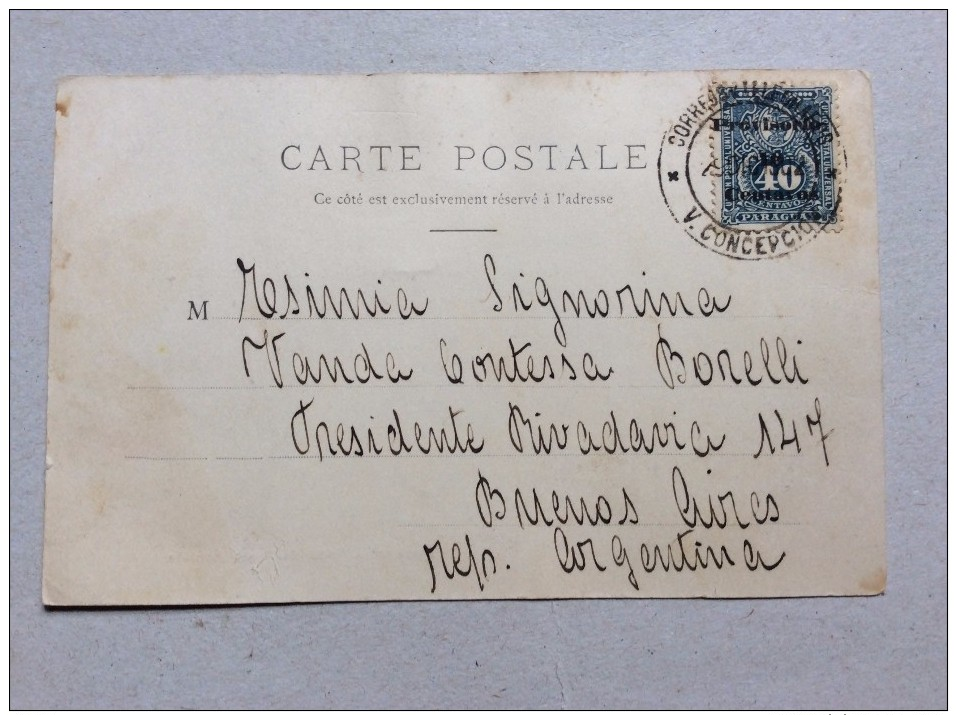 CARTE POSTALE
Ce côté est exclusivement réservé à l'adresse
M Esimia Signorina
Vanda Contessa Borelli
Presidente Rivadavia 147
Buenos Aires
rep. Argentina
CORREOS
V. CONCEPCION
40
CENTAVOS
PARAGUAY